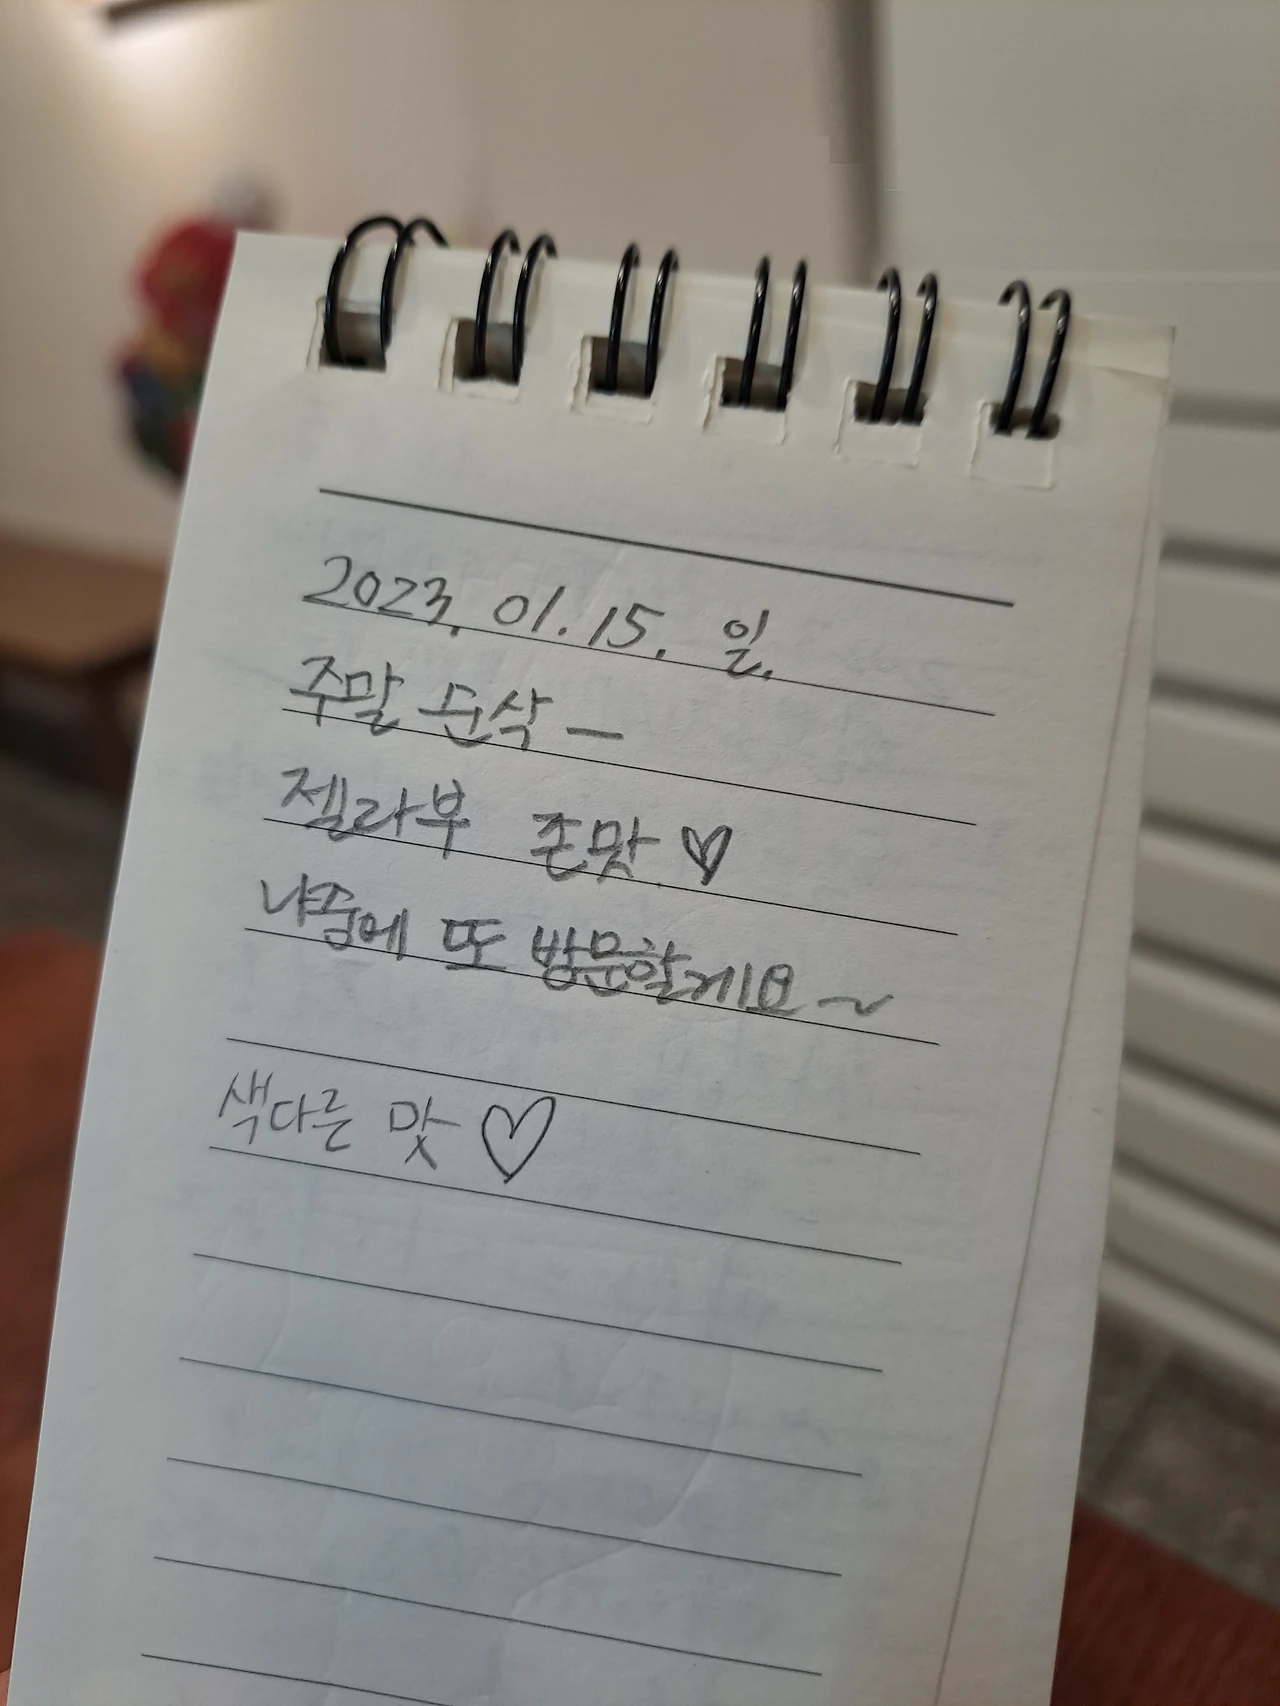 2023. 01. 15. 일.
주말 순삭 —
젤라부 존맛 ♥
나중에 또 방문할게요~
색다른 맛 ♡